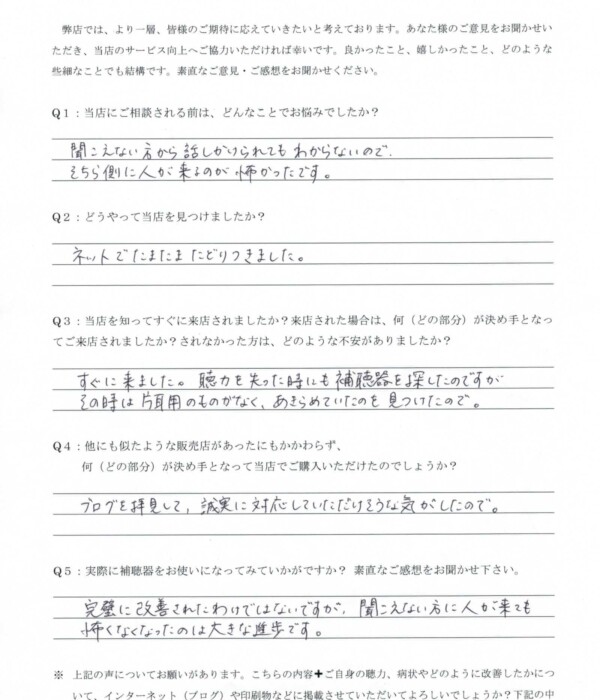 弊店では、より一層、皆様のご期待に応えていきたいと考えております。あなた様のご意見をお聞かせい
ただき、当店のサービス向上へご協力いただければ幸いです。良かったこと、嬉しかったこと、どのような
些細なことでも結構です。素直なご意見・ご感想をお聞かせください。
Q1：当店にご相談される前は、どんなことでお悩みでしたか？
聞こえない方から話しかけられてもわからないので、
そちら側に人が来るのが怖かったです。
Q2：どうやって当店を見つけましたか？
ネットでたまたまたどりつきました。
Q3：当店を知ってすぐに来店されましたか？来店された場合は、何（どの部分）が決め手となっ
てご来店されましたか？されなかった方は、どのような不安がありましたか？
すぐに来ました。聴力を失った時にも補聴器を探したのですが
その時は片耳用のものがなく、あきらめていたのを見つけたので。
Q4：他にも似たような販売店があったにもかかわらず、
何（どの部分）が決め手となって当店でご購入いただけたのでしょうか？
ブログを拝見して、誠実に対応していただけそうな気がしたので。
Q5：実際に補聴器をお使いになってみていかがですか？ 素直なご感想をお聞かせ下さい。
完璧に改善されたわけではないですが、聞こえない方に人が来ても
怖くなくなったのは大きな進歩です。
※ 上記の声についてお願いがあります。こちらの内容＋ご自身の聴力、病状やどのように改善したかにつ
いて、インターネット（ブログ）や印刷物などに掲載させていただいてよろしいでしょうか？下記の中